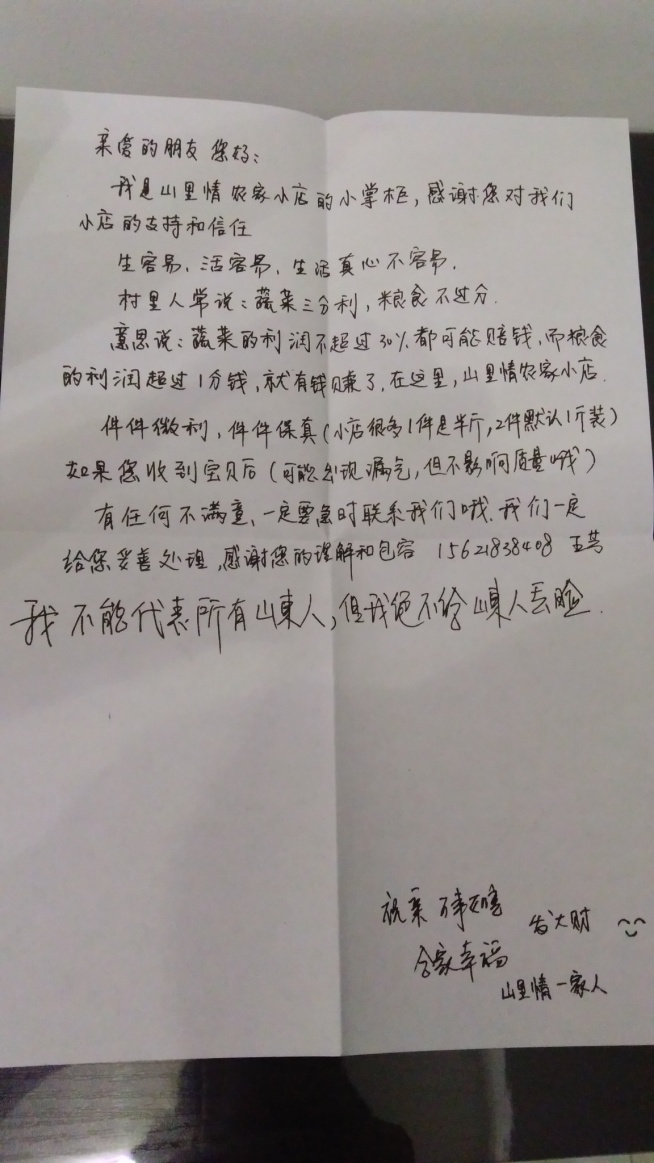 亲爱的朋友 您好：
我是山里情农家小店的小掌柜，感谢您对我们
小店的支持和信任
生容易、活容易、生活真心不容易.
村里人常说：蔬菜三分利，粮食不过分.
意思说：蔬菜的利润不超过30%都可能赔钱，而粮食
的利润超过1分钱，就有钱赚了.在这里，山里情农家小店.
件件微利，件件保真(小店很多1件是半斤，2件默认1斤装)
如果您收到宝贝后(可能出现漏气，但不影响质量哦)
有任何不满意、一定要急时联系我们哦.我们一定
给您妥善处理，感谢您的理解和包容 15621838408
我不能代表所有山東人，但我绝不给山東人丢脸.
祝亲 万事如意 发大财
合家幸福
山里情一家人